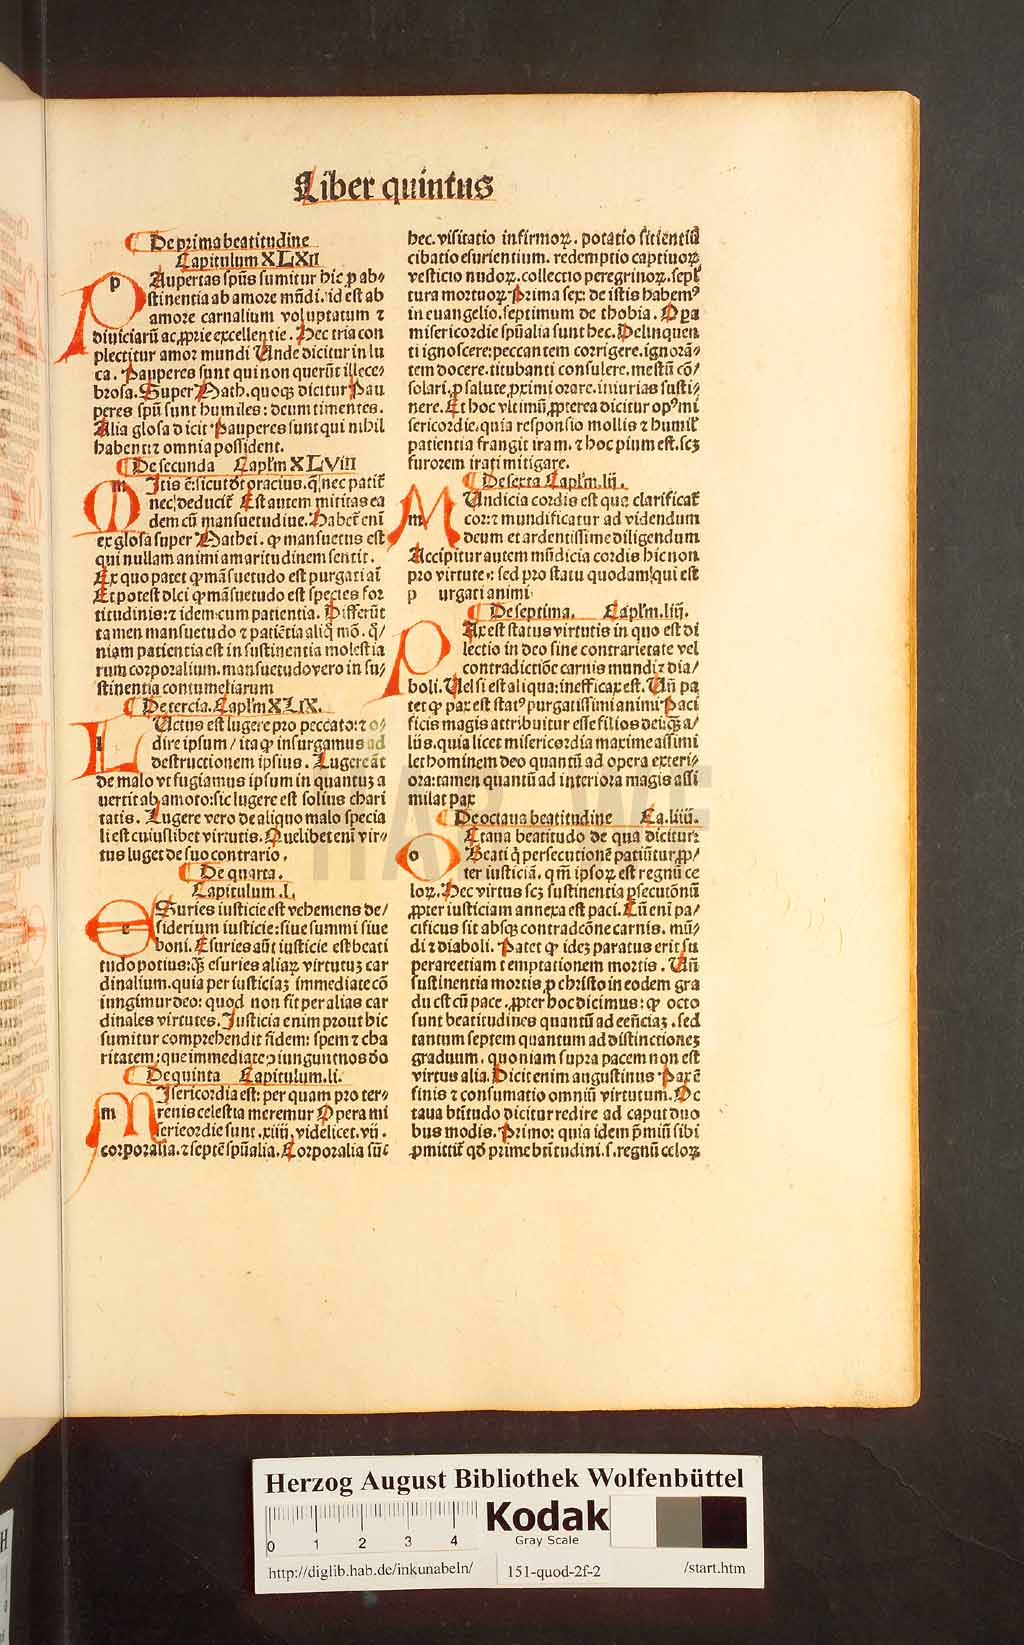 Liber quintus
De prima beatitudine
Capitulum XLXII
PAupertas spūs sumitur hic ꝓ ab⸗
stinentia ab amore mūdi. id est ab
amore carnalium voluptatum ⁊
diuiciarū ac ꝓprie excellentie. Hec tria con
plectitur amor mundi Unde dicitur in lu
ca. Pauperes sunt qui non querūt illece⸗
brosa. Super Math. quoqꝫ dicitur Pau
peres spū sunt humiles: deum timentes.
Alia glosa dicit Pauperes sunt qui nihil
habent ⁊ omnia possident.
De secunda Caplm̄ XLVIII
mItis ē: sicut dt̄ oracius. q̄ nec patit̄
nec deducit̄ Est autem mititas ea
dem cū mansuetudiue. Habet̄ eni
ex glosa super Mathei. ꝙ mansuetus est
qui nullam animi amaritudinem sentit.
Ex quo patet ꝙ māsuetudo est purgati aī
Et potest dici ꝙ māsuetudo est species for
titudinis: ⁊ idem cum patientia. Differūt
tamen mansuetudo ⁊ patiētia aliq̄ mō. q̄/
niam patientia est in sustinentia molestia
rum corporalium. mansuetudo vero in su⸗
stinentia contumeliarum
De tercia. Caplm̄ XLIX.
lUctus est lugere pro peccato: ⁊ o⸗
dire ipsum / ita ꝙ insurgamus ad
destructionem ipsius. Lugere āt
de malo vt fugiamus ipsum in quantuꝫ a
uertit ab amoto: sic lugere est solius chari
tatis. Lugere vero de aliquo malo specia
li est cuiuslibet virtutis. Quelibet eni vir⸗
tus luget de suo contrario.
De quarta.
Capitulum. L
eSuries iusticie est vehemens de/
siderium iusticie: siue summi siue
boni. Esuries aūt iusticie est beati
tudo potius: qꝫ esuries aliaꝝ virtutuꝫ car
dinalium. quia per iusticiaꝫ immediate cō
iungimur deo: quod non fit per alias car
dinales virtutes. Justicia enim prout hic
sumitur comprehendit fidem: spem ⁊ cha
ritatem: que immediate ↄiungunt nos do
De quinta Capitulum. li.
mIsericordia est: per quam pro ter⸗
renis celestia meremur Opera mi
sericordie sunt. xiiij. videlicet. vij.
corporalia. ⁊ septē spūalia. Corporalia sūt
hec. visitatio infirmoꝝ. potatio sitientiū
cibatio esurientium. redemptio captiuoꝝ
vesticio nudoꝝ. collectio peregrinoꝝ. sepl̄
tura mortuoꝝ Prima sex: de istis habemꝰ
in euangelio. septimum de thobia. Opa
misericordie spūalia sunt hec. Delinquen
ti ignoscere: peccantem corrigere. ignorā⸗
tem docere. titubanti consulere. mestū cō/
solari. ꝓ salute ꝓximi orare. iniurias susti⸗
nere. Et hoc vltimū ꝓpterea dicitur opꝰ mi
sericordie. quia responsio mollis ⁊ humil̄
patientia frangit iram. ⁊ hoc pium est. scꝫ
furorem irati mitigare.
De sexta Caplm̄. lij.
mUndicia cordis est qua clarificat̄
cor: ⁊ mundificatur ad videndum
deum et ardentissime diligendum
Accipitur autem mūdicia cordis hic non
pro virtute: sed pro statu quodam qui est
p urgati animi
De septima. Caplm̄. liij.
PAx est status virtutis in quo est di
lectio in deo sine contrarietate vel
contradictiōe carnis mundi ⁊ dia/
boli. Uel si est aliqua: inefficax est. Un̄ pa
tet ꝙ pax est statꝰ purgatissimi animi Paci
ficis magis attribuitur esse filios dei: qꝫ a/
liis. quia licet misericordia maxime assimi
let hominem deo quantū ad opera exteri⸗
ora: tamen quantū ad interiora magis assi
milat pax
De octaua beatitudine Ca. liiij.
oCtaua beatitudo de qua dicitur:
Beati q̇ persecutionē patiūtur ꝓp/
ter iusticiā. qm̄ ipsoꝝ est regnū ce
loꝝ. Hec virtus scꝫ sustinentia ꝑsecutōnū
ꝓpter iusticiam annexa est paci. Cū eni pa/
cificus sit absqꝫ contradcōne carnis. mū⸗
di ⁊ diaboli. Patet ꝙ ideꝫ paratus erit su
perare etiam temptationem mortis. Un̄
sustinentia mortis ꝓ christo in eodem gra
du est cū pace. ꝓpter hoc dicimus: ꝙ octo
sunt beatitudines quantū ad eēnciaꝫ. sed
tantum septem quantum ad distinctioneꝫ
graduum. quoniam supra pacem non est
virtus alia. Dicit enim augustinus Pax ē
finis ⁊ consumatio omniū virtutum. Oc
taua btītudo dicitur redire ad caput duo
bus modis. Primo: quia idem p̄miū sibi
ꝓmittit̄ qd̄ prime btītudini. s. regnū celoꝝ
HAB WF
Herzog August Bibliothek Wolfenbüttel
0 1 2 3 4
Kodak
Gray Scale
http://diglib.hab.de/inkunabeln/ 151-quod-2f-2 /start.htm